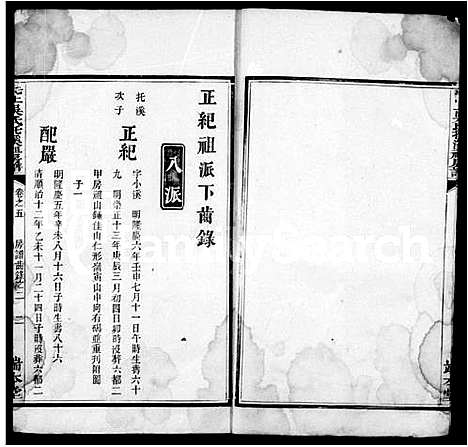 正紀祖派下齒錄
八派
托溪
次子
正紀
字小溪 明隆慶六年壬申七月十一日午時生壽六十
九 明崇正十三年庚辰三月初四日卯時沒葬六都二
甲房祖山錘佳山仁形嶺寅山申向有碑並重刊附圖
子一
配嚴
明隆慶五年辛未八月十六日子時生壽八十六
清順治十二年乙未十一月二十四日子時沒葬六都二
卷之五
房譜齒錄之二
端本堂
端本堂